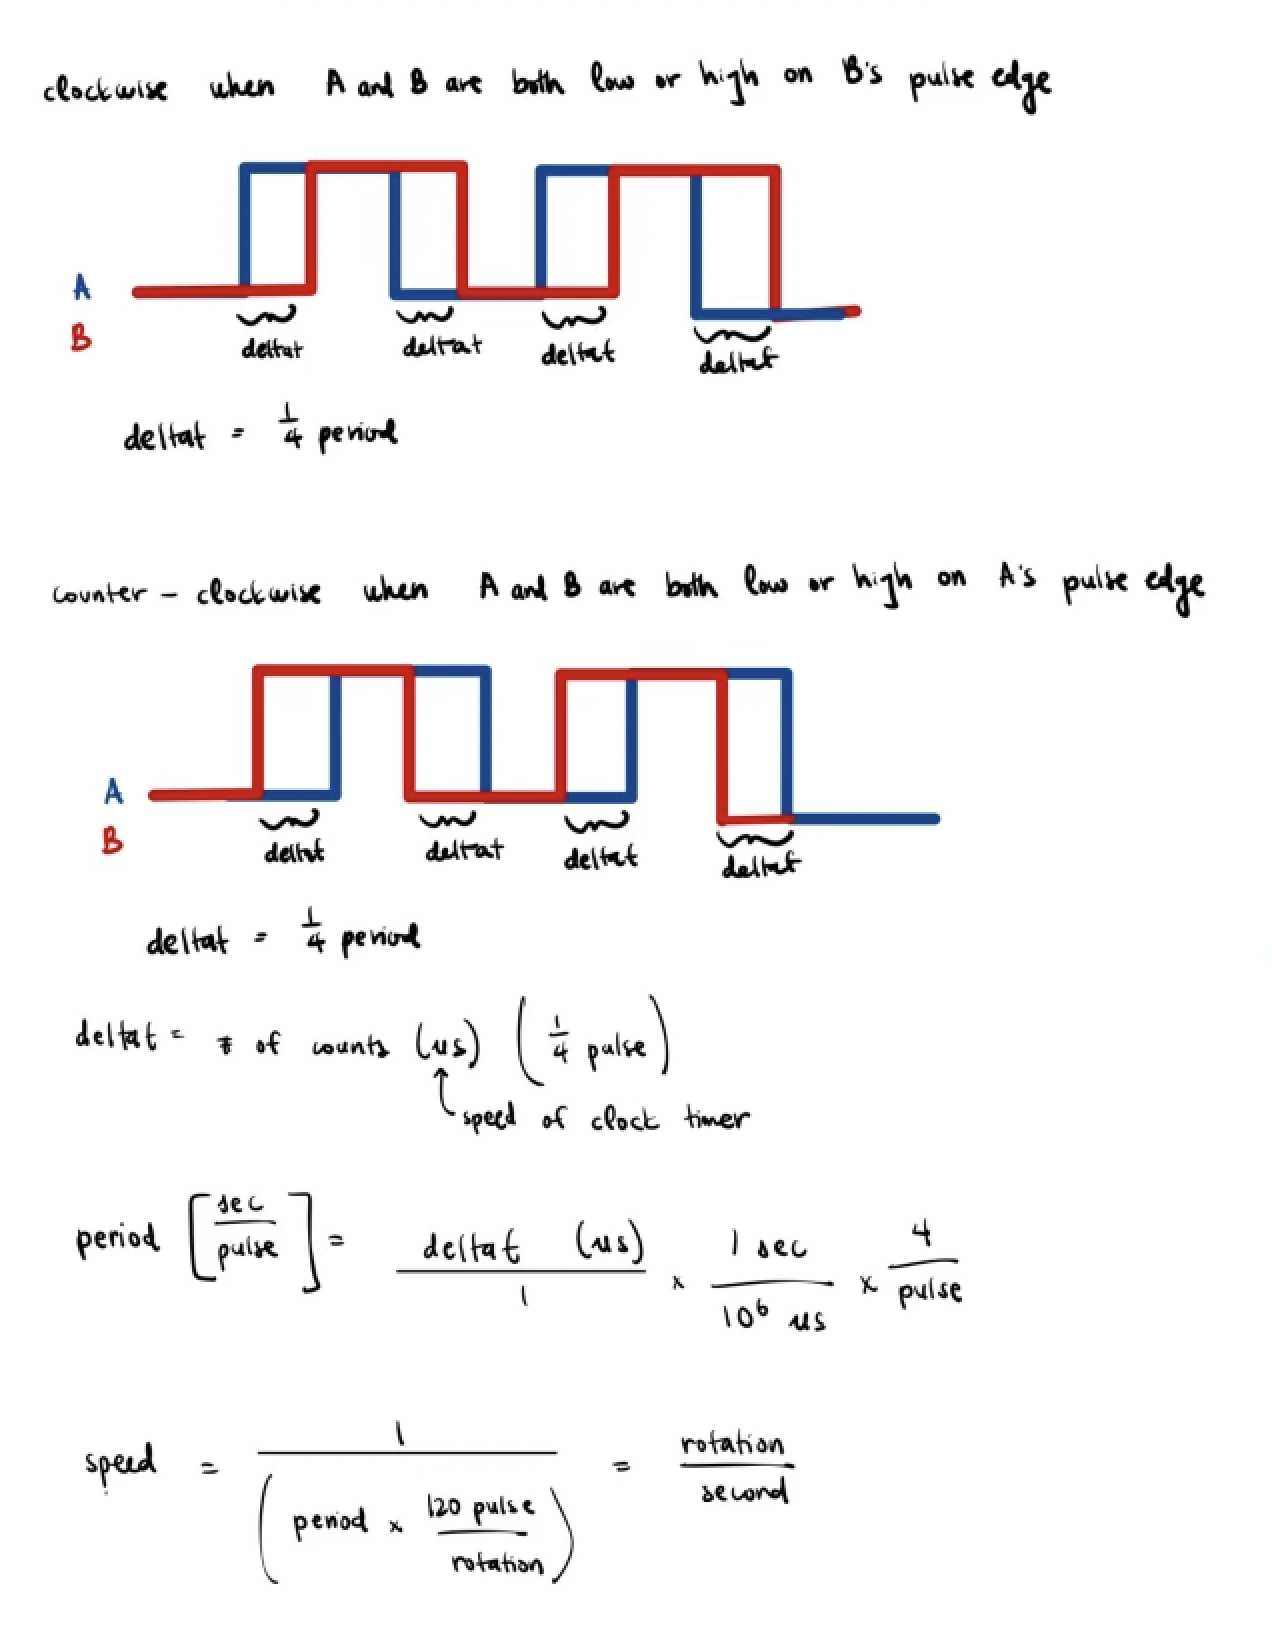 clockwise when A and B are both low or high on B's pulse edge
A
B
deltat deltat deltat deltat
deltat = 1/4 period
counter - clockwise when A and B are both low or high on A's pulse edge
A
B
deltat deltat deltat deltat
deltat = 1/4 period
deltat = # of counts (us) (1/4 pulse)
speed of clock timer
period [sec/pulse] = deltat (us)/1 x 1 sec/10⁶ us x 4/pulse
speed = 1/(period x 120 pulse/rotation) = rotation/second